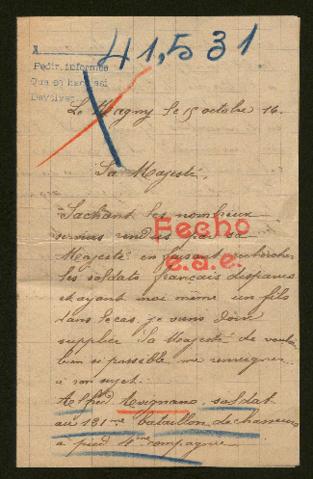 41,531
A
Pedir informes
Que se haga así
Devolver
Le Magny le 15 octobre 16.
Sa Majesté,
Sachant les nombreux
services rendus par sa
Majesté en faisant rechercher
les soldats français disparus
et ayant moi même un fils
dans le cas, je viens
supplier Sa Majesté de vouloir
bien si possible me renseigner
à son sujet.
Fecho
e.a.e.
Alfred Avignano, soldat
au 121me bataillon de chasseurs
à pied 4me compagnie